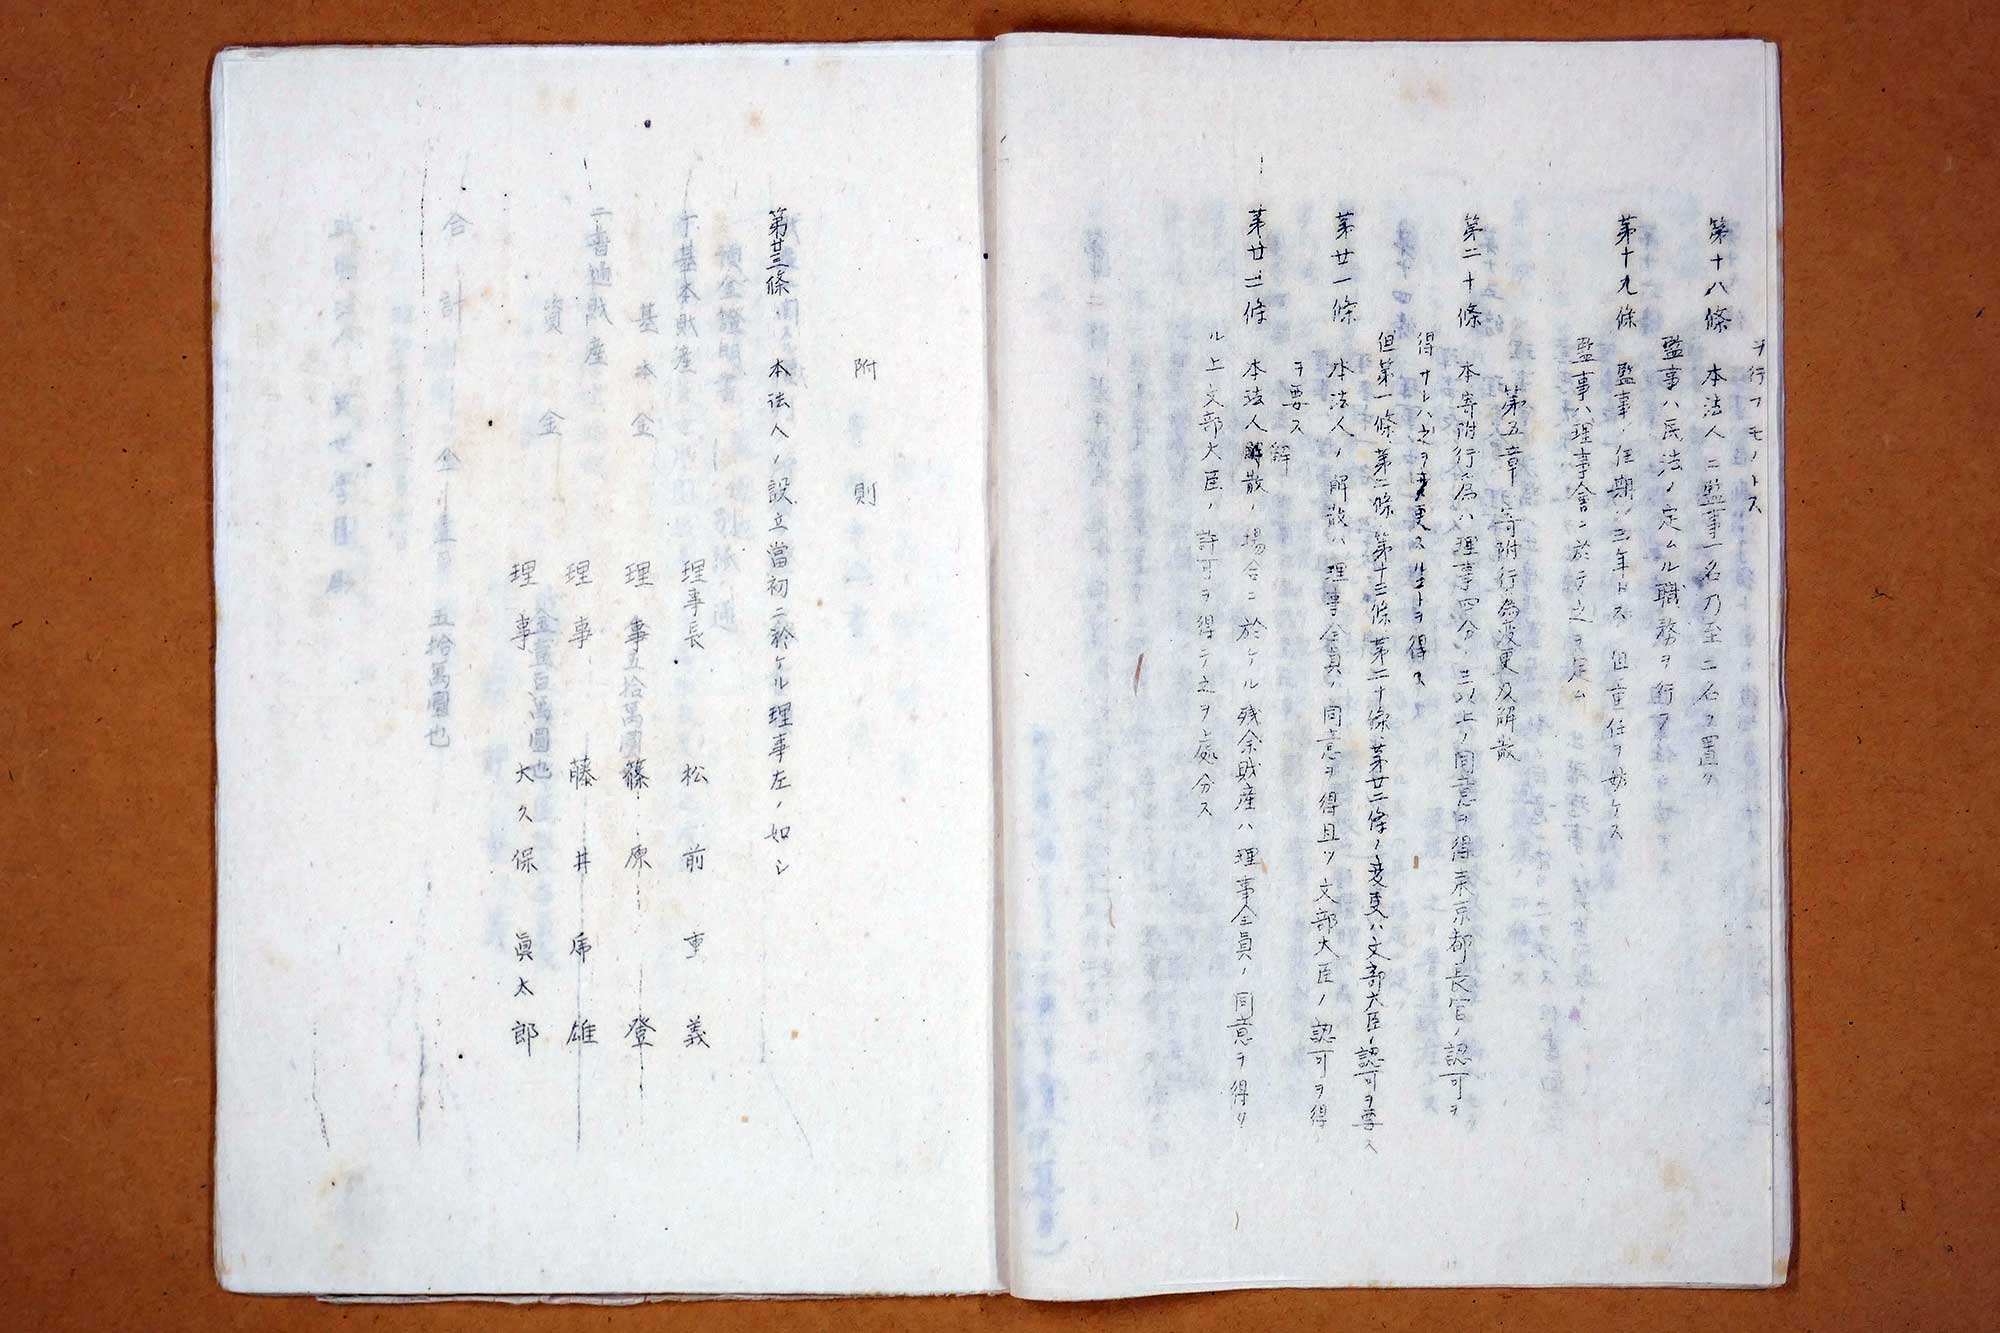 ヲ行フモノトス
第十八條 本法人ニ監事一名乃至二名ヲ置ク
監事ハ民法ノ定ムル職務ヲ行フ
第十九條 監事ノ任期ハ三年トス 但重任ヲ妨ケス
監事ハ理事會ニ於テ之ヲ定ム
第五章 寄附行為変更及解散
第二十條 本寄附行為ハ理事四分ノ三以上ノ同意ヲ得東京都長官ノ認可ヲ
得サレハ之ヲ変更スルコトヲ得ス
但第一條、第二條 第十三條 第二十條、第廿二條ノ変更ハ文部大臣ノ認可ヲ要ス
第廿一條 本法人ノ解散ハ理事全員ノ同意ヲ得且ツ文部大臣ノ認可ヲ得
ヲ要ス
解
第廿二條 本法人解散ノ場合ニ於ケル残余財産ハ理事全員ノ同意ヲ得タ
ル上文部大臣ノ許可ヲ得テ之ヲ處分ス
附則
第廿三條 本法人ノ設立當初ニ於ケル理事左ノ如シ
理事長 松前重義
理事 篠原登
理事 藤井席雄
理事 大久保眞太郎
基本財産
基本金 五拾萬圓
普通財産
資金 金壹百萬圓也
合計 五拾萬圓也